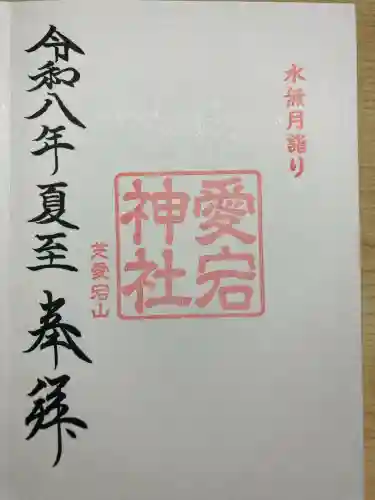 水無月詣り
愛宕
神社
芝愛宕山
令和八年夏至 奉拝